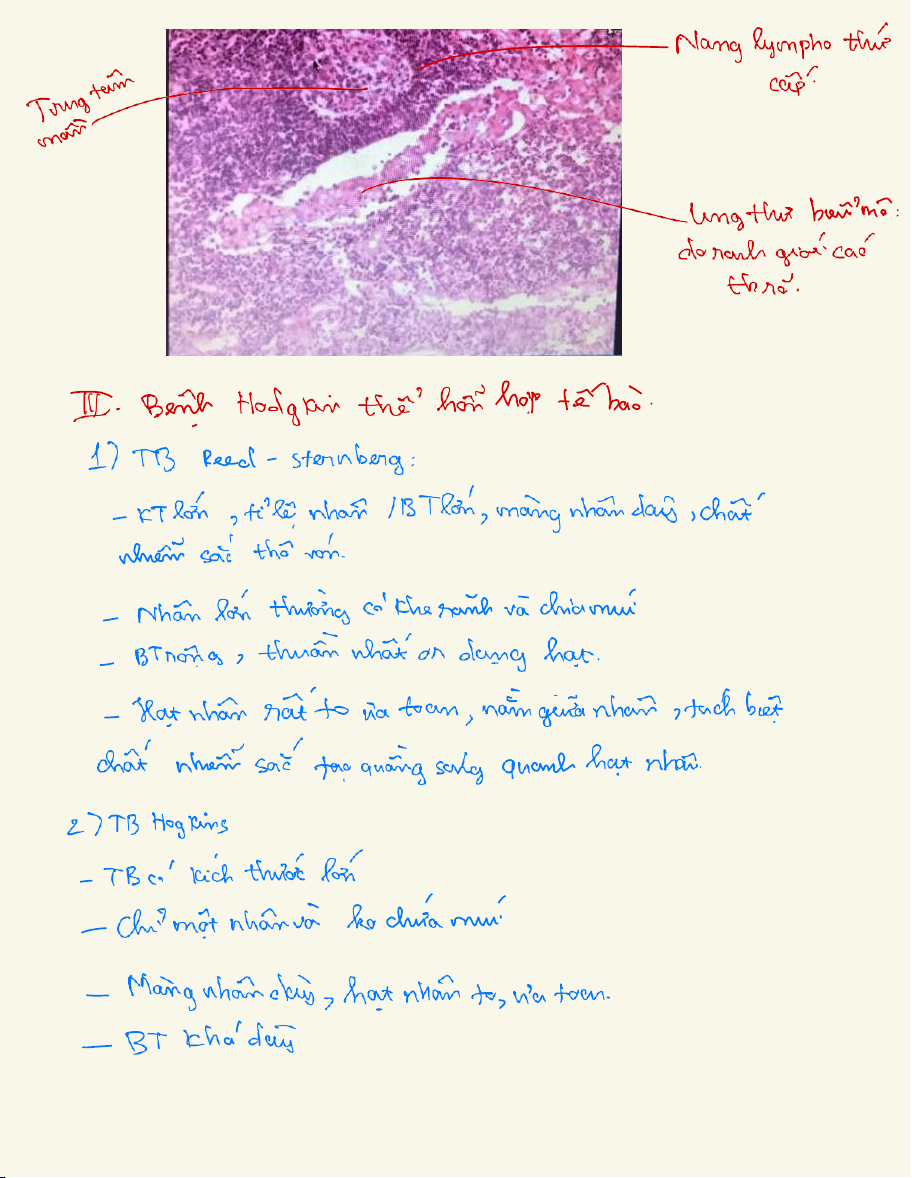 Nang lympho thứ
cấp.
Trung tâm
mầm
Ung thư biểu mô:
do ranh giới các
th rõ.
III. Bệnh Hodgkin thể hỗn hợp tế bào.
1) TB Reed - sternberg:
- KT lớn, tỉ lệ nhân /BT lớn, màng nhân dày, chất
nhiễm sắc thô vón.
- Nhân lớn thường có khe rãnh và chia múi
- BT rộng, thuần nhất or dạng hạt.
- Hạt nhân rất to ưa toan, nằm giữa nhân, tách biệt
chất nhiễm sắc tạo quầng sáng quanh hạt nhân.
2) TB Hogkins
- TB có kích thước lớn
- Chỉ một nhân và ko chứa múi
- Màng nhân dày, hạt nhân to, ưa toan.
- BT khá dày